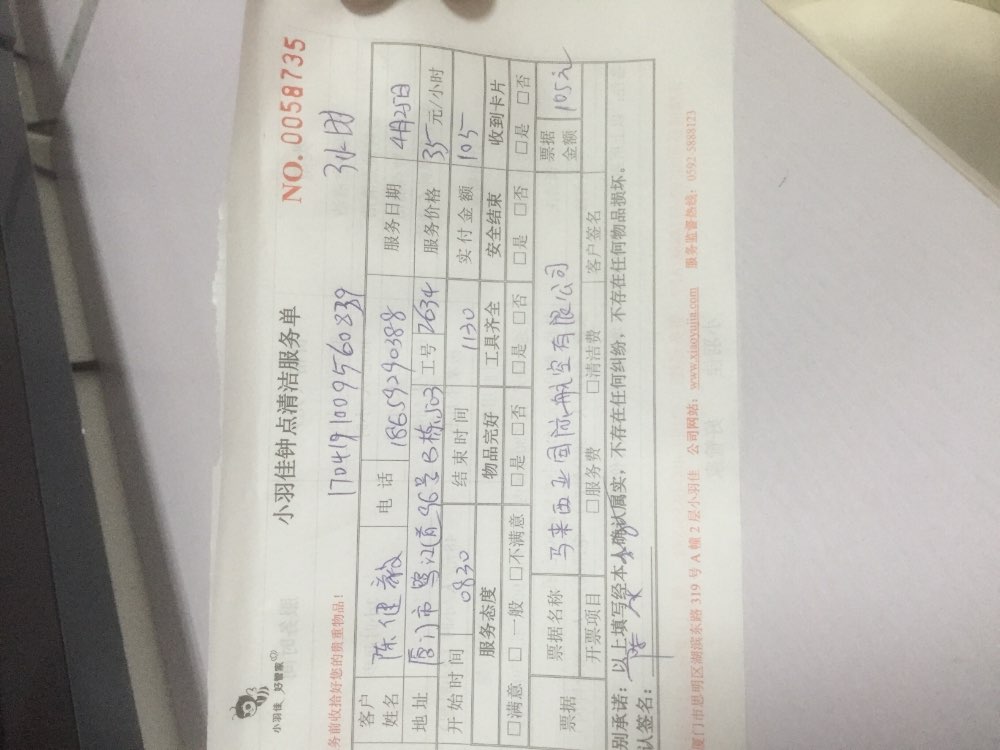 小羽佳 好管家
小羽佳钟点清洁服务单
NO. 0058735
务前收拾好您的贵重物品!
1704191009560839
客户姓名 陈健毅 电话 18659290388 服务日期 4月25日
地址 厦门市鹭江道96号B栋503 工号 2634 服务价格 35元/小时
开始时间 0830 结束时间 1130 实付金额 105
服务态度 物品完好 工具齐全 安全结束 收到卡片
□满意 □一般 □不满意 □是 □否 □是 □否 □是 □否 □是 □否
票据 票据名称 马来西亚国际航空有限公司 票据金额 105元
开票项目 □服务费 □清洁费 客户签名
别承诺:以上填写经本人确认属实,不存在任何纠纷,不存在任何物品损坏。
认签名:
厦门市思明区湖滨东路 319 号 A 幢 2 层小羽佳 公司网站: www.xiaoyujia.com 服务监督热线: 0592 5888123